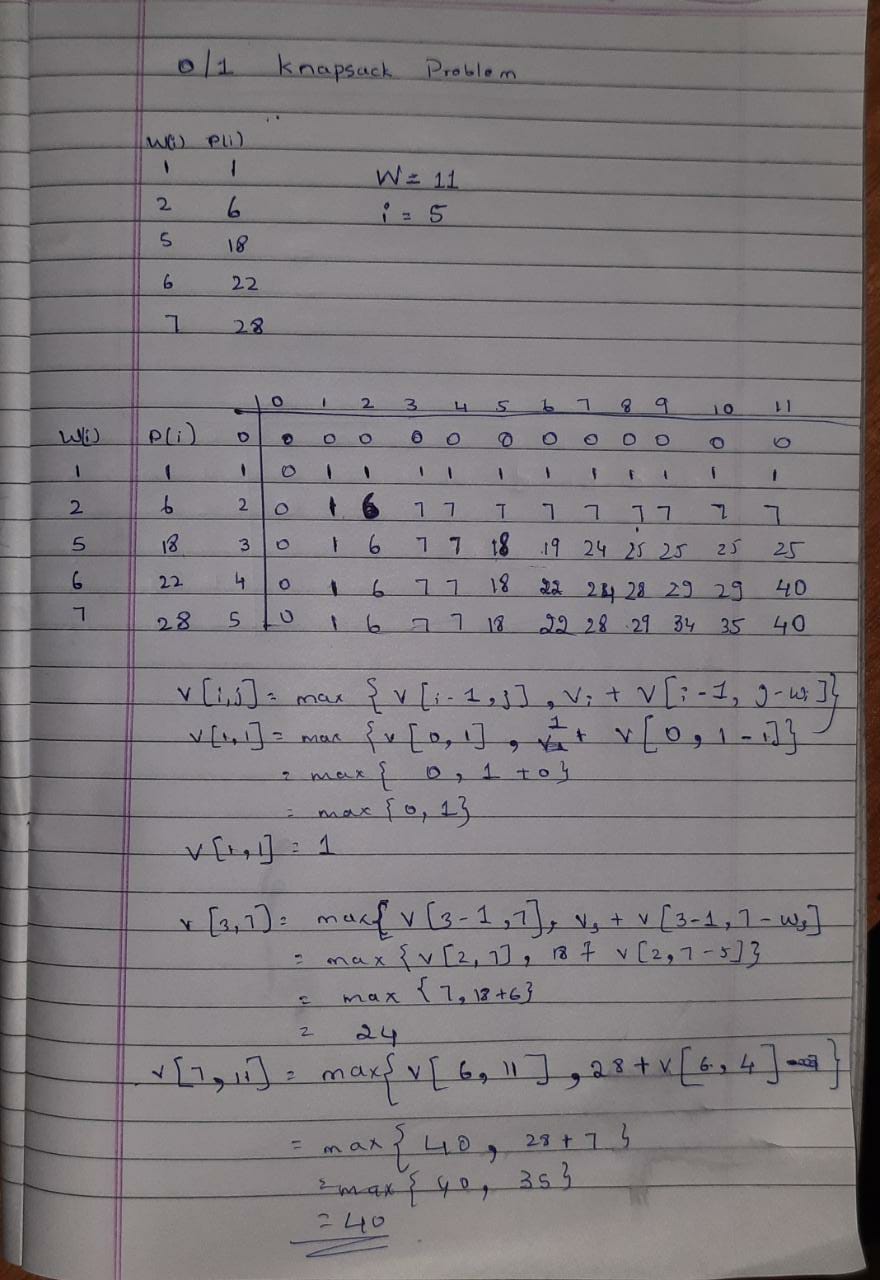 0/1 Knapsack Problem
W(i) P(i)
1 1
W = 11
2 6
i = 5
5 18
6 22
7 28
0 1 2 3 4 5 6 7 8 9 10 11
W(i) P(i) 0 0 0 0 0 0 0 0 0 0 0 0 0
1 1 1 0 1 1 1 1 1 1 1 1 1 1 1
2 6 2 0 1 6 7 7 7 7 7 7 7 7 7
5 18 3 0 1 6 7 7 18 19 24 25 25 25 25
6 22 4 0 1 6 7 7 18 22 24 28 29 29 40
7 28 5 0 1 6 7 7 18 22 28 29 34 35 40
V[i,j] = max { V[i-1,j], Vi + V[i-1, j-wi]}
V[1,1] = max {V[0,1], 1 + V[0, 1-1]}
= max { 0, 1+0}
= max {0, 1}
V[1,1] = 1
V[3,7] = max{ V[3-1,7], V3 + V[3-1, 7-W3]
= max {V[2,7], 18 + V[2,7-5]}
= max {7, 18+6}
= 24
V[7,11] = max{ V[6,11], 28 + V[6,4] }
= max { 40, 28+7 }
= max { 40, 35}
= 40